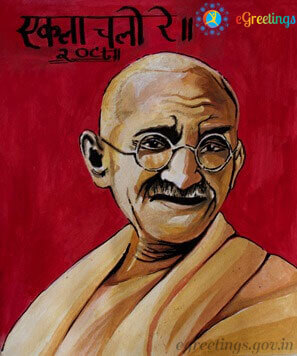 एकला चलो रे॥
eGreetings
egreetings.gov.in